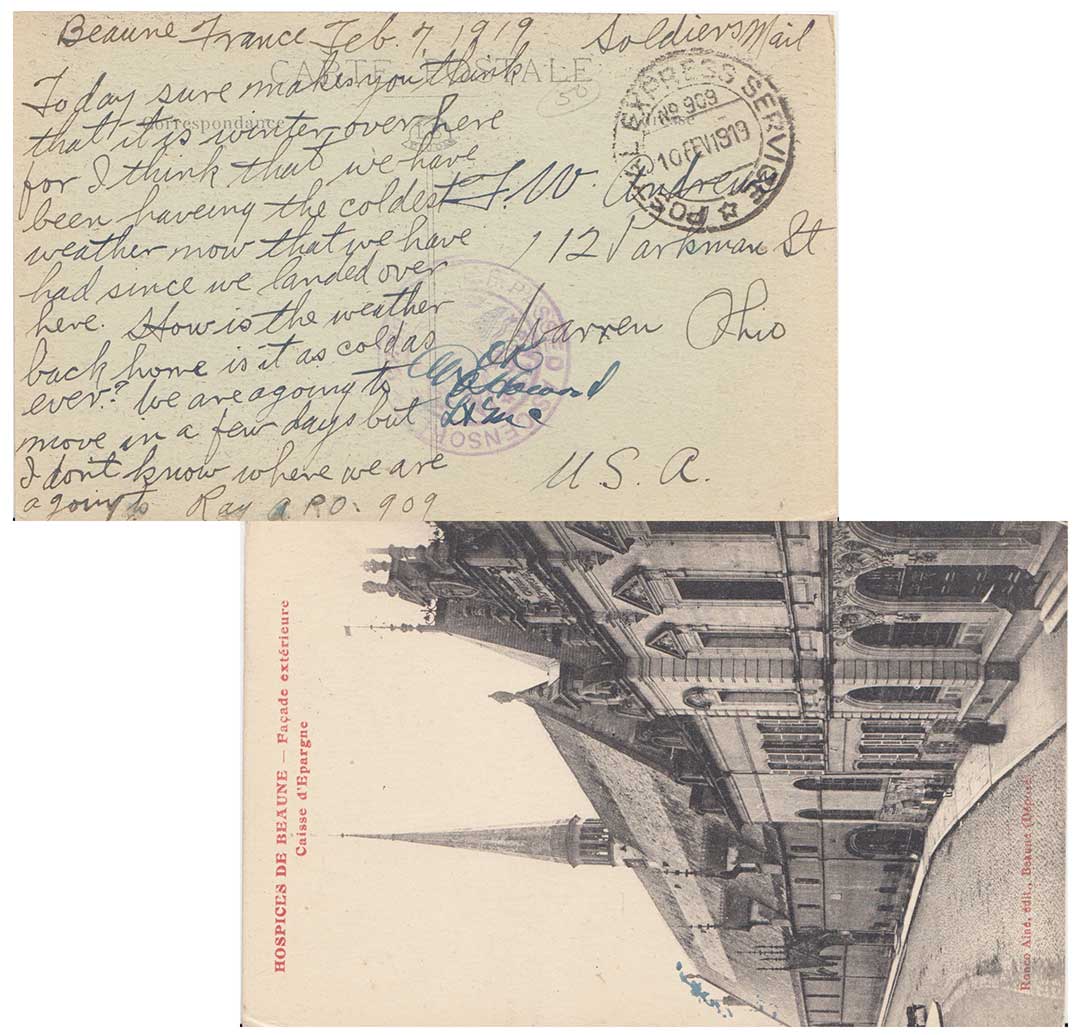 Beaune France Feb. 7, 1919 Soldiers Mail
CARTE POSTALE
Correspondance
50
Today sure makes you think
that it is winter over here
for I think that we have
been haveing the coldest
weather now that we have
had since we landed over
here. How is the weather
back home is it as cold as
ever? We are agoing to
move in a few days but
I don't know where we are
agoing to Ray A.P.O. 909
POSTAL EXPRESS SERVICE
No 909
10 FEV 1919
F. W. Andrews
112 Parkman St
Warren Ohio
U. S. A.
PASSED AS CENSORED
OK
HOSPICES DE BEAUNE — Façade extérieure
Caisse d'Epargne
Ronco Aîné, édit., Beaune (Déposé)